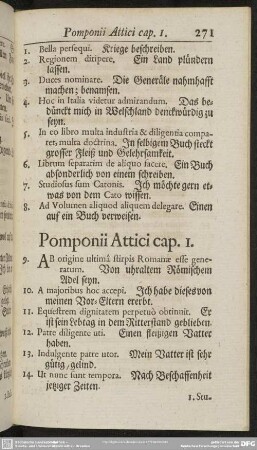 Pomponii Attici cap. 1. 271
1. Bella persequi. Kriege beschreiben.
2. Regionem diripere. Ein Land plündern
lassen.
3. Duces nominare. Die Generäle nahmhafft
machen; benamsen.
4. Hoc in Italia videtur admirandum. Das be-
dünckt mich in Welschland denckwürdig zu
seyn.
5. In eo libro multa industria & diligentia compa-
ret, multa doctrina. In selbigem Buch steckt
grosser Fleiß und Gelehrsamkeit.
6. Librum separatim de aliquo facere. Ein Buch
absonderlich von einem schreiben.
7. Studiosus sum Catonis. Ich möchte gern et-
was von dem Cato wissen.
8. Ad Volumen aliquod aliquem delegare. Einen
auf ein Buch verweisen.
Pomponii Attici cap. 1.
9. AB origine ultimâ stirpis Romanæ esse gene-
ratum. Von uhraltem Römischem
Adel seyn.
10. A majoribus hoc accepi. Ich habe dieses von
meinen Vor-Eltern ererbt.
11. Equestrem dignitatem perpetuò obtinuit. Er
ist sein Lebtag in dem Ritterstand geblieben.
12. Patre diligente uti. Einen fleißigen Vatter
haben.
13. Indulgente patre utor. Mein Vatter ist sehr
gütig, gelind.
14. Ut nunc sunt tempora. Nach Beschaffenheit
jetziger Zeiten.
1. Stu-